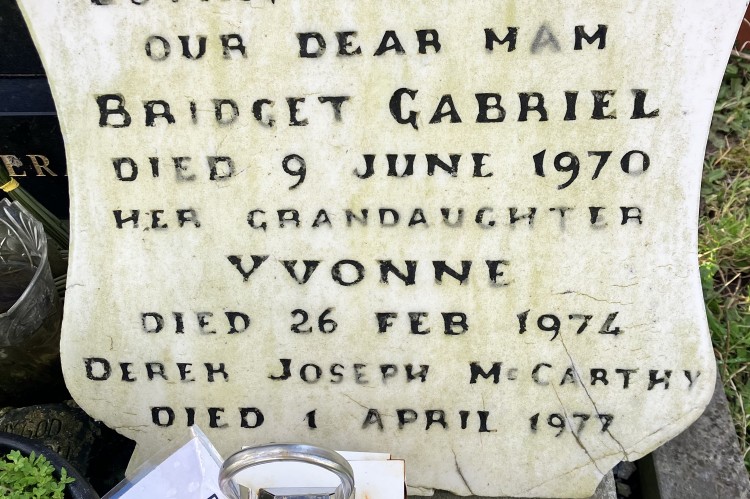 OUR DEAR MAM
BRIDGET GABRIEL
DIED 9 JUNE 1970
HER GRANDAUGHTER
YVONNE
DIED 26 FEB 1974
DEREK JOSEPH McCARTHY
DIED 1 APRIL 1977